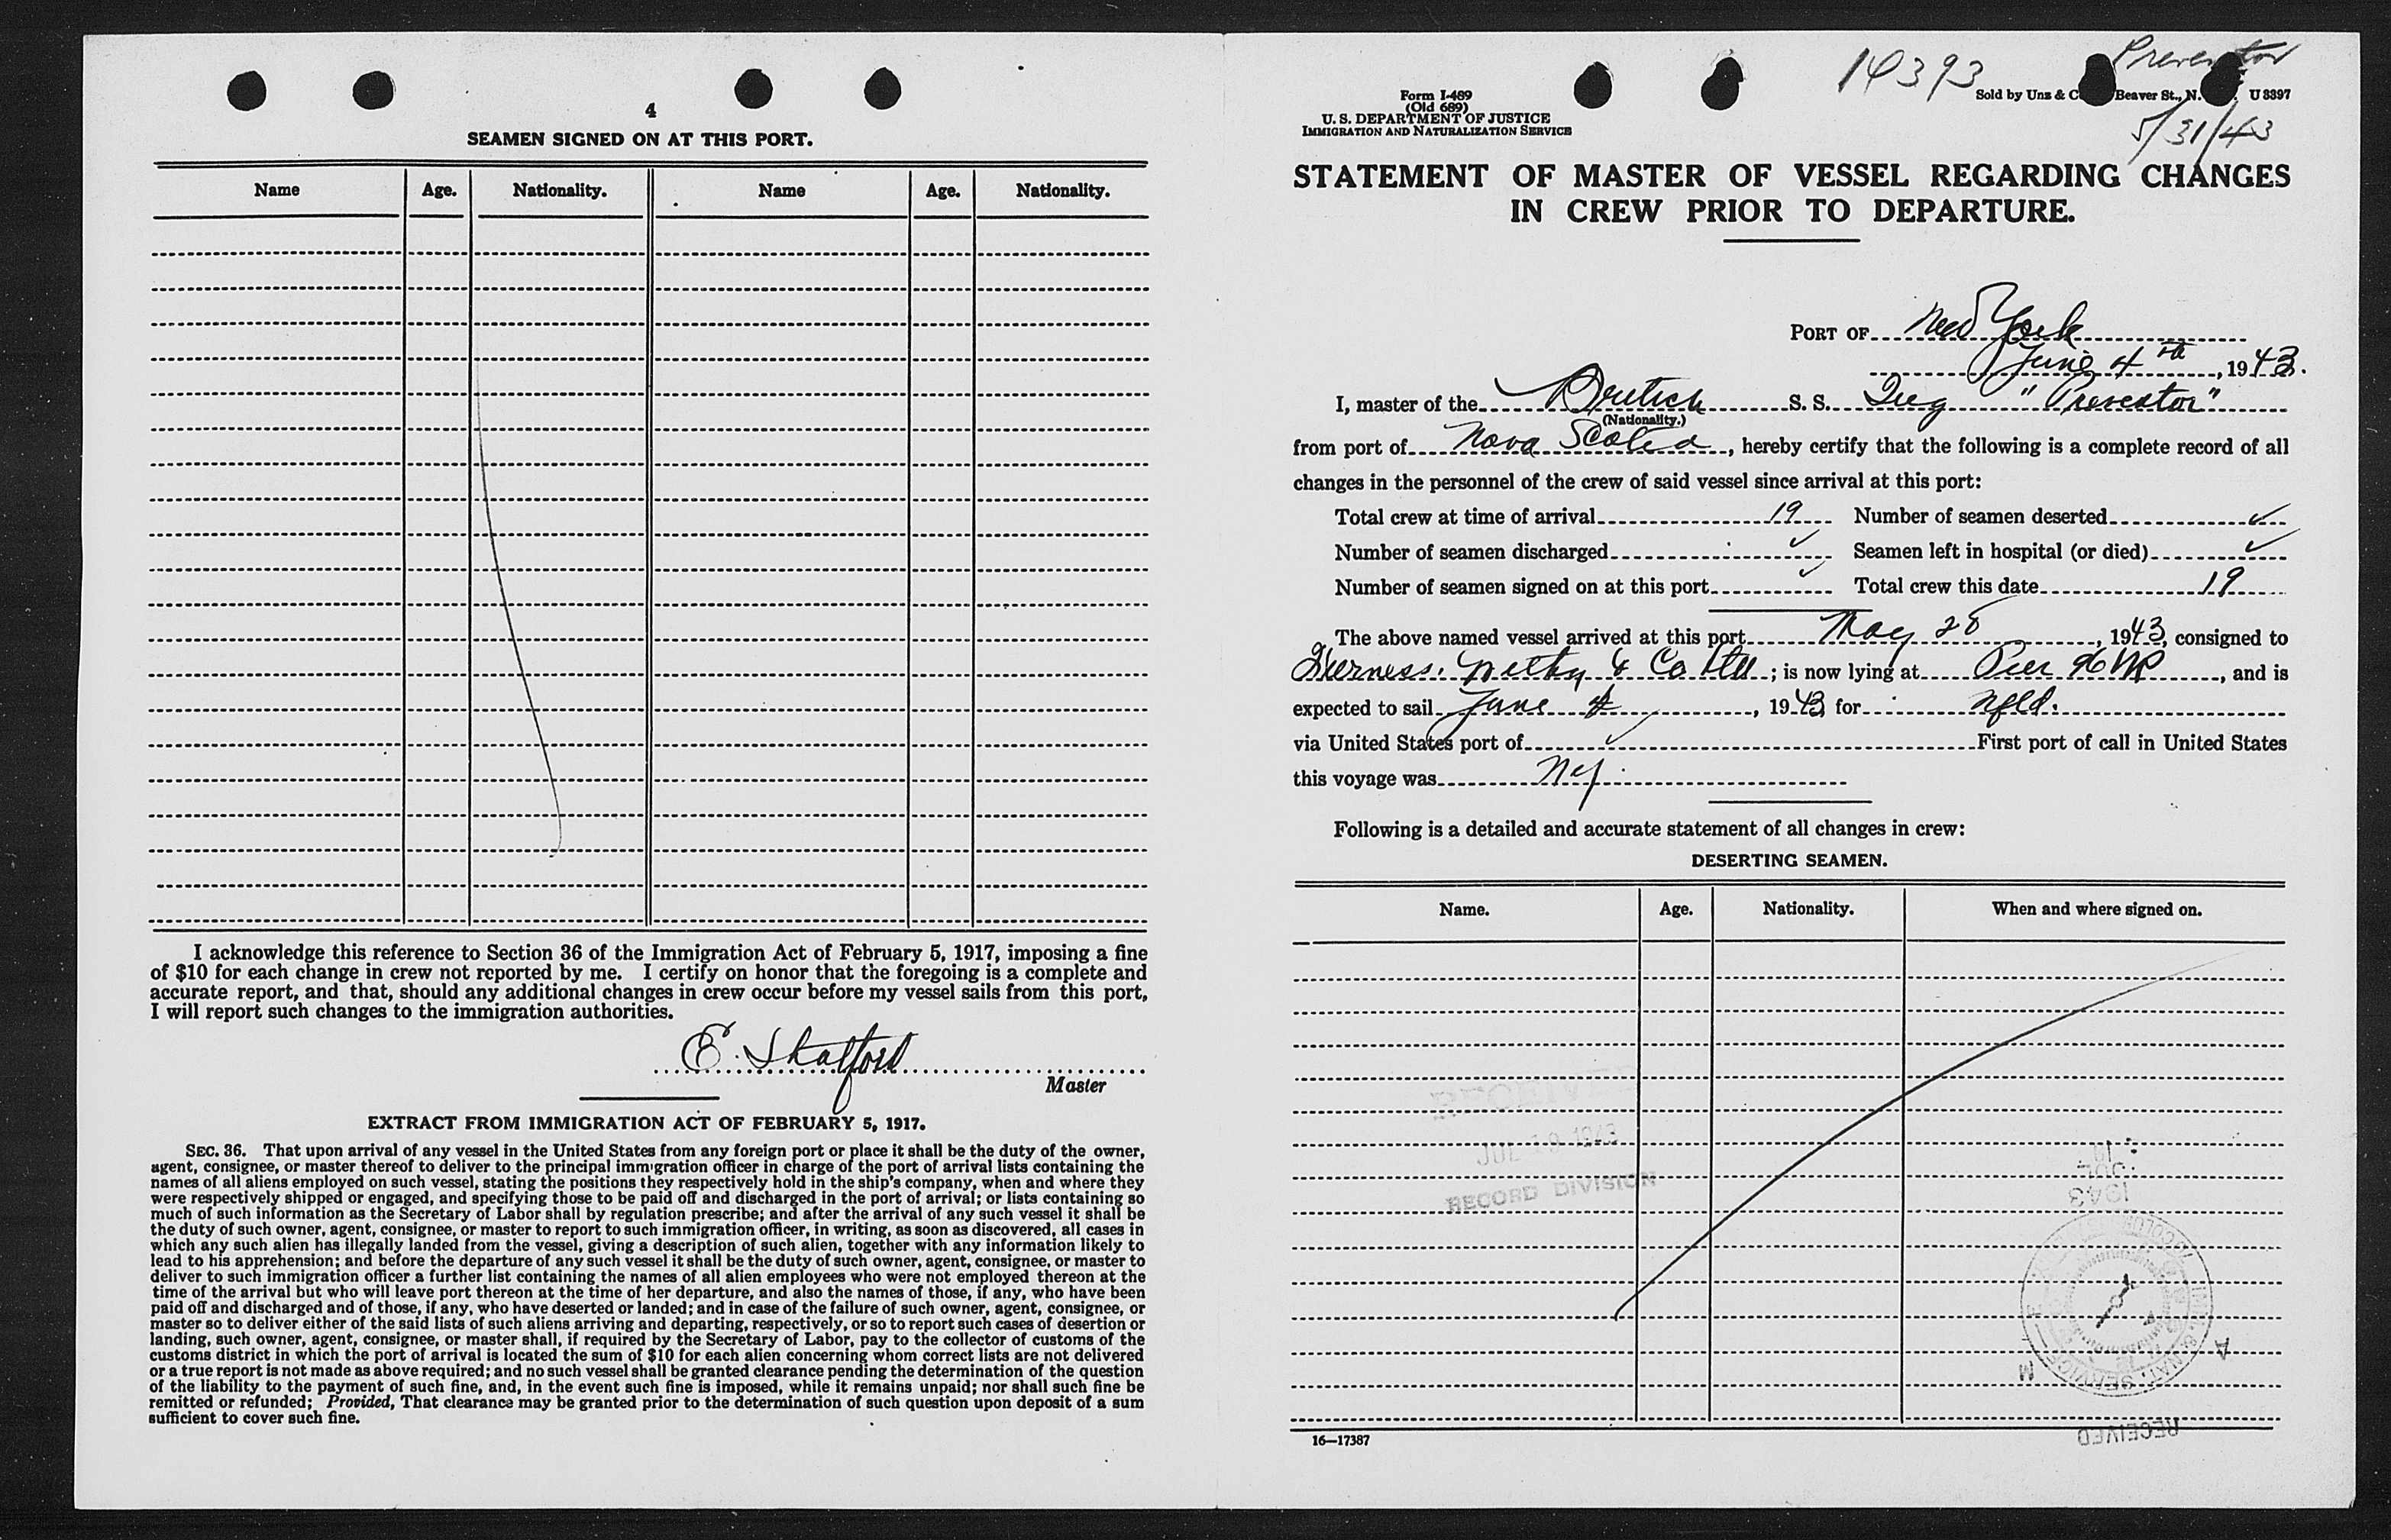 4
SEAMEN SIGNED ON AT THIS PORT.
Name Age. Nationality. Name Age. Nationality.
I acknowledge this reference to Section 36 of the Immigration Act of February 5, 1917, imposing a fine
of $10 for each change in crew not reported by me. I certify on honor that the foregoing is a complete and
accurate report, and that, should any additional changes in crew occur before my vessel sails from this port,
I will report such changes to the immigration authorities.
E. Shatford
Master
EXTRACT FROM IMMIGRATION ACT OF FEBRUARY 5, 1917.
SEC. 36. That upon arrival of any vessel in the United States from any foreign port or place it shall be the duty of the owner,
agent, consignee, or master thereof to deliver to the principal immigration officer in charge of the port of arrival lists containing the
names of all aliens employed on such vessel, stating the positions they respectively hold in the ship's company, when and where they
were respectively shipped or engaged, and specifying those to be paid off and discharged in the port of arrival; or lists containing so
much of such information as the Secretary of Labor shall by regulation prescribe; and after the arrival of any such vessel it shall be
the duty of such owner, agent, consignee, or master to report to such immigration officer, in writing, as soon as discovered, all cases in
which any such alien has illegally landed from the vessel, giving a description of such alien, together with any information likely to
lead to his apprehension; and before the departure of any such vessel it shall be the duty of such owner, agent, consignee, or master to
deliver to such immigration officer a further list containing the names of all alien employees who were not employed thereon at the
time of the arrival but who will leave port thereon at the time of her departure, and also the names of those, if any, who have been
paid off and discharged and of those, if any, who have deserted or landed; and in case of the failure of such owner, agent, consignee, or
master so to deliver either of the said lists of such aliens arriving and departing, respectively, or so to report such cases of desertion or
landing, such owner, agent, consignee, or master shall, if required by the Secretary of Labor, pay to the collector of customs of the
customs district in which the port of arrival is located the sum of $10 for each alien concerning whom correct lists are not delivered
or a true report is not made as above required; and no such vessel shall be granted clearance pending the determination of the question
of the liability to the payment of such fine, and, in the event such fine is imposed, while it remains unpaid; nor shall such fine be
remitted or refunded; Provided, That clearance may be granted prior to the determination of such question upon deposit of a sum
sufficient to cover such fine.
14393 Preventor
Form I-489
(Old 689)
U. S. DEPARTMENT OF JUSTICE
IMMIGRATION AND NATURALIZATION SERVICE
Sold by Unz & C Beaver St., N. U 3397
5/31/43
STATEMENT OF MASTER OF VESSEL REGARDING CHANGES
IN CREW PRIOR TO DEPARTURE.
PORT OF New York
June 4th, 1943.
I, master of the British S. S. "Preventor"
(Nationality.)
from port of Nova Scotia, hereby certify that the following is a complete record of all
changes in the personnel of the crew of said vessel since arrival at this port:
Total crew at time of arrival 19 Number of seamen deserted ✓
Number of seamen discharged ✓ Seamen left in hospital (or died) ✓
Number of seamen signed on at this port ✓ Total crew this date 19
The above named vessel arrived at this port May 28, 1943, consigned to
Withy & Co Ltd; is now lying at Pier, and is
expected to sail June 4, 1943 for Nfld.
via United States port of ✓ First port of call in United States
this voyage was
Following is a detailed and accurate statement of all changes in crew:
DESERTING SEAMEN.
Name. Age. Nationality. When and where signed on.
RECEIVED
JUL 19 1943
RECORD DIVISION
JUL 19
1943
RECEIVED
16—17387